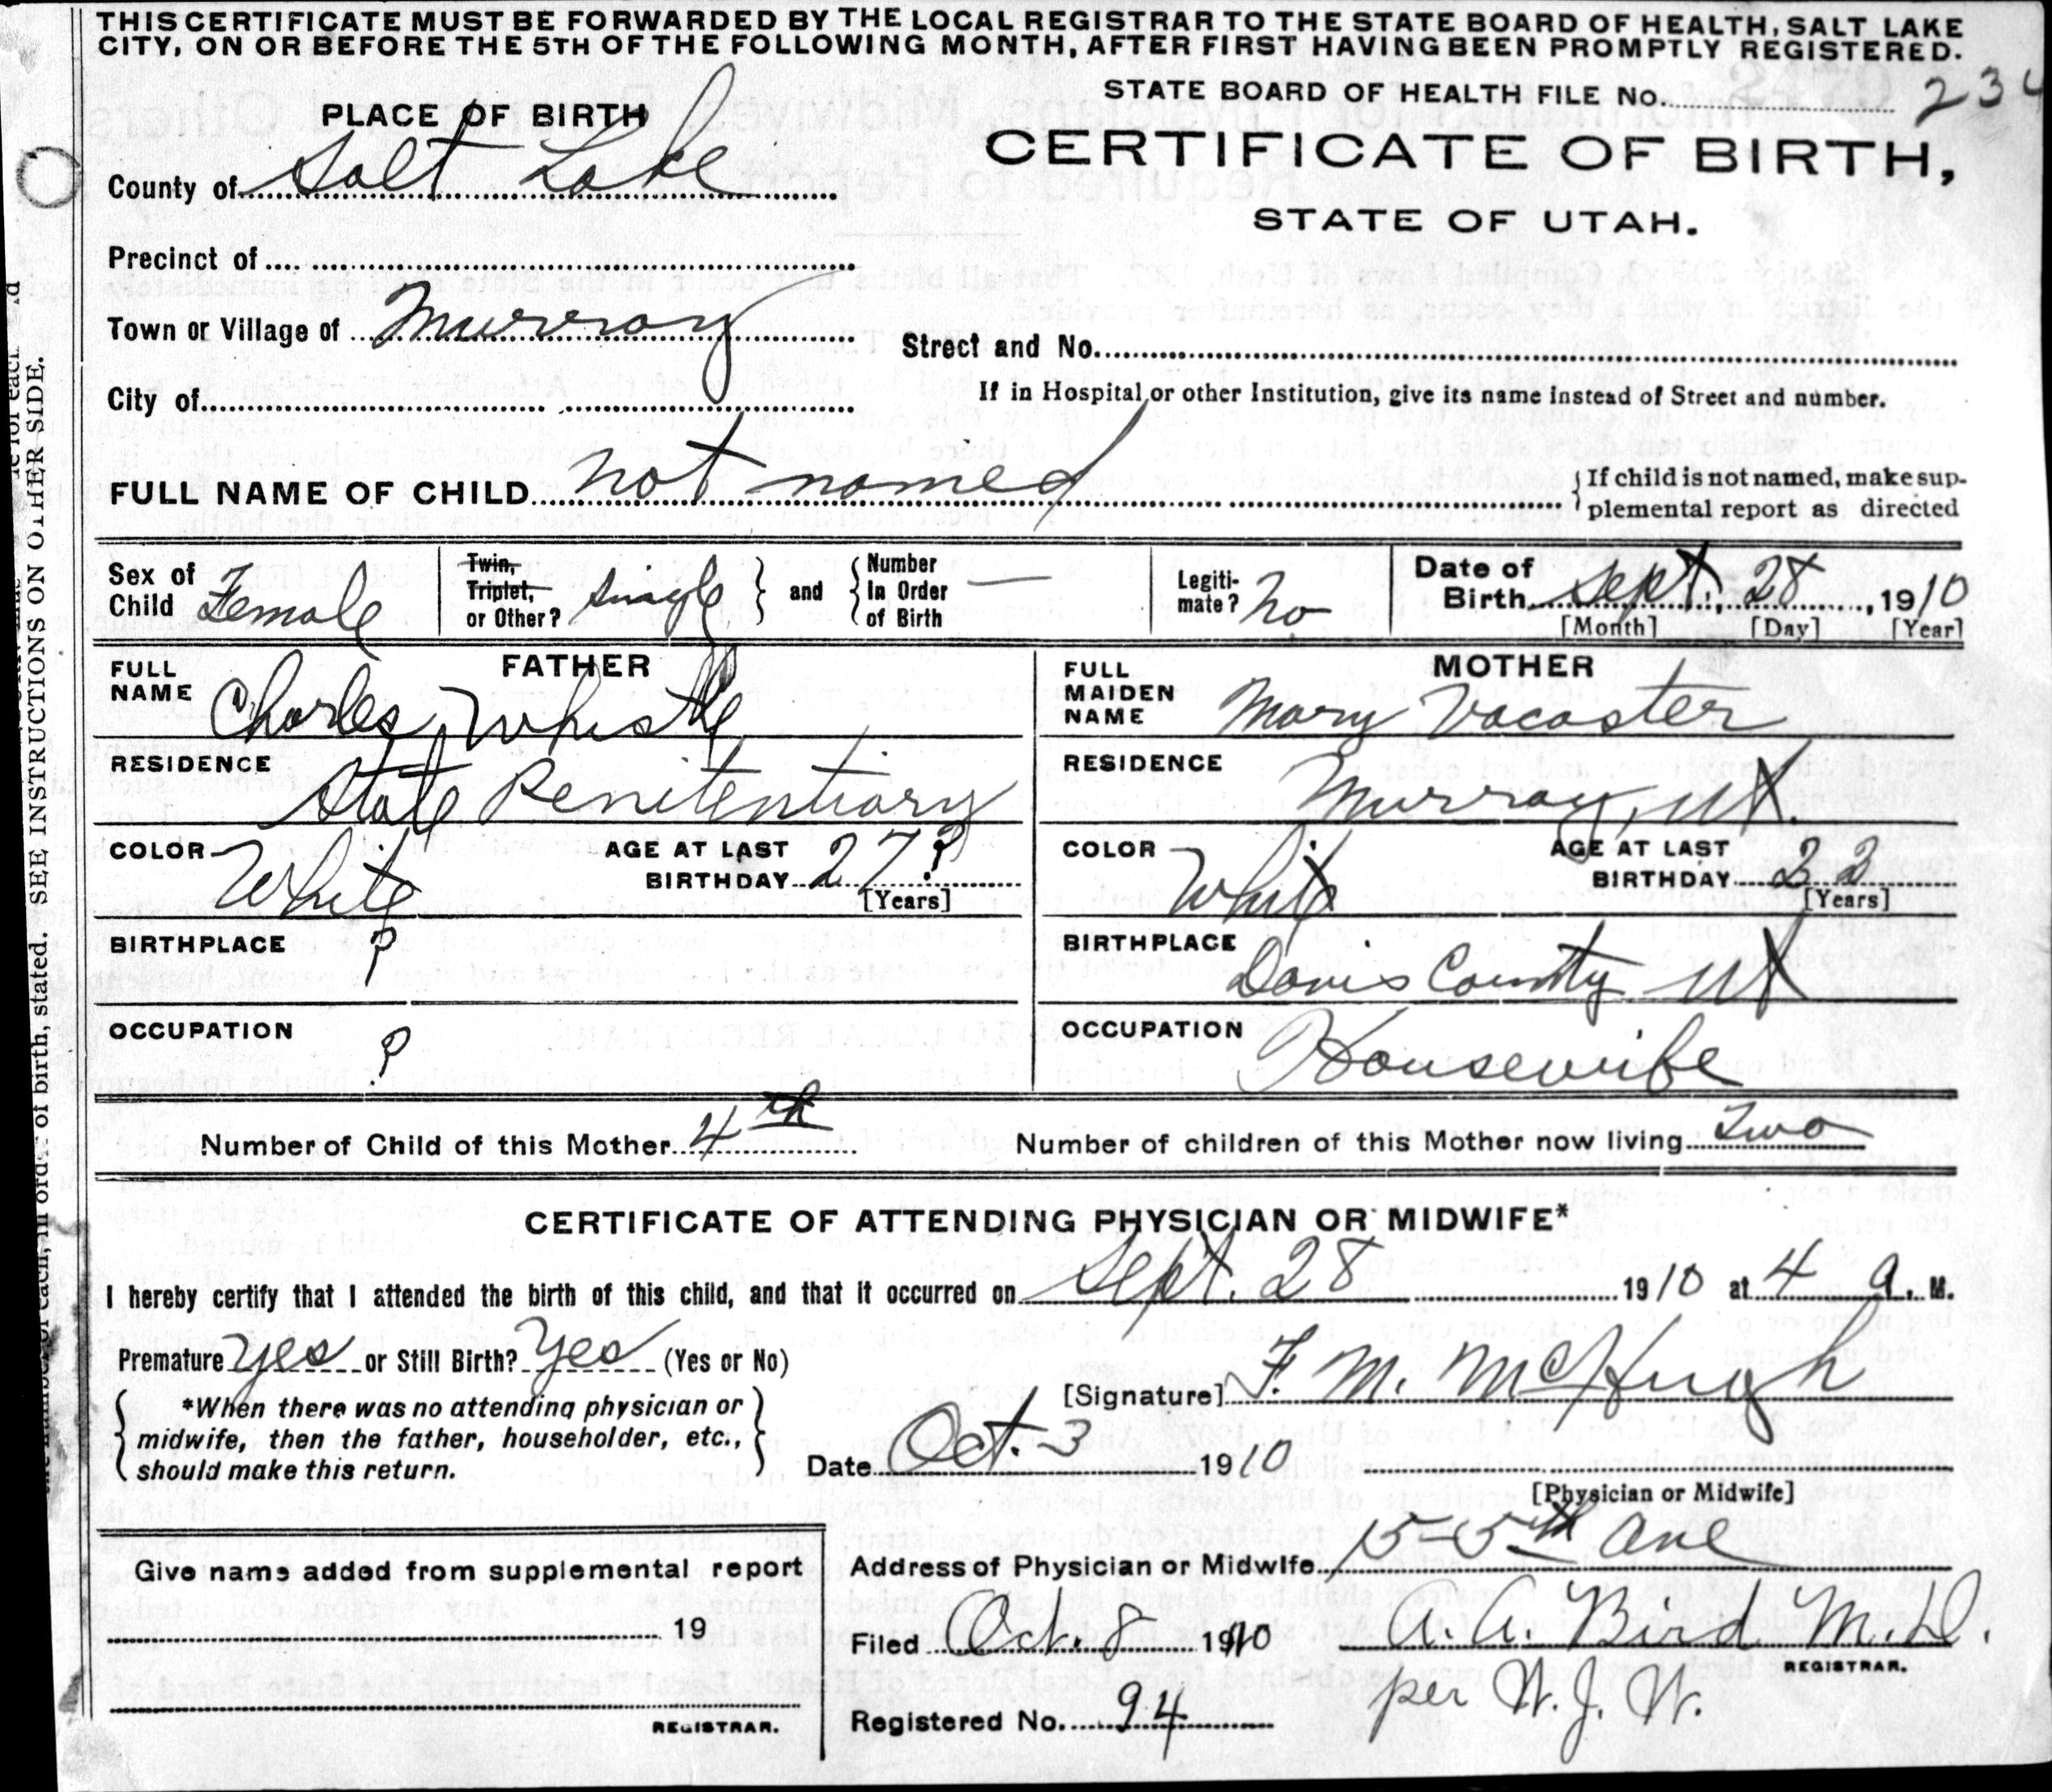 THIS CERTIFICATE MUST BE FORWARDED BY THE LOCAL REGISTRAR TO THE STATE BOARD OF HEALTH, SALT LAKE
CITY, ON OR BEFORE THE 5TH OF THE FOLLOWING MONTH, AFTER FIRST HAVING BEEN PROMPTLY REGISTERED.
STATE BOARD OF HEALTH FILE No. 234
PLACE OF BIRTH
CERTIFICATE OF BIRTH,
County of Salt Lake
STATE OF UTAH.
Precinct of
Town or Village of Murray
Street and No.
City of
If in Hospital or other Institution, give its name instead of Street and number.
FULL NAME OF CHILD not named
{ If child is not named, make sup-
plemental report as directed
Sex of Child Female
Twin, Triplet, or Other? single } and { Number In Order of Birth —
Legiti-mate? No
Date of Birth Sept. 28, 1910
[Month] [Day] [Year]
FATHER
FULL NAME Charles Whistle
RESIDENCE State Penitentiary
COLOR White
AGE AT LAST BIRTHDAY 27?
[Years]
BIRTHPLACE ?
OCCUPATION ?
MOTHER
FULL MAIDEN NAME Mary Vacaster
RESIDENCE Murray, Ut.
COLOR White
AGE AT LAST BIRTHDAY 23
[Years]
BIRTHPLACE Davis County Ut
OCCUPATION Housewife
Number of Child of this Mother 4th
Number of children of this Mother now living Two
CERTIFICATE OF ATTENDING PHYSICIAN OR MIDWIFE*
I hereby certify that I attended the birth of this child, and that it occurred on Sept. 28 1910 at 4 a. M.
Premature yes or Still Birth? Yes (Yes or No)
[Signature] F. M. McHugh
{ *When there was no attending physician or
midwife, then the father, householder, etc.,
should make this return. }
Date Oct. 3 1910
[Physician or Midwife]
Address of Physician or Midwife 15-5th Ave
Give name added from supplemental report
19
REGISTRAR.
Filed Oct. 8 1910
A. A. Bird M.D.
REGISTRAR.
per W. J. W.
Registered No. 94
of each, in order of birth, stated. SEE INSTRUCTIONS ON OTHER SIDE.